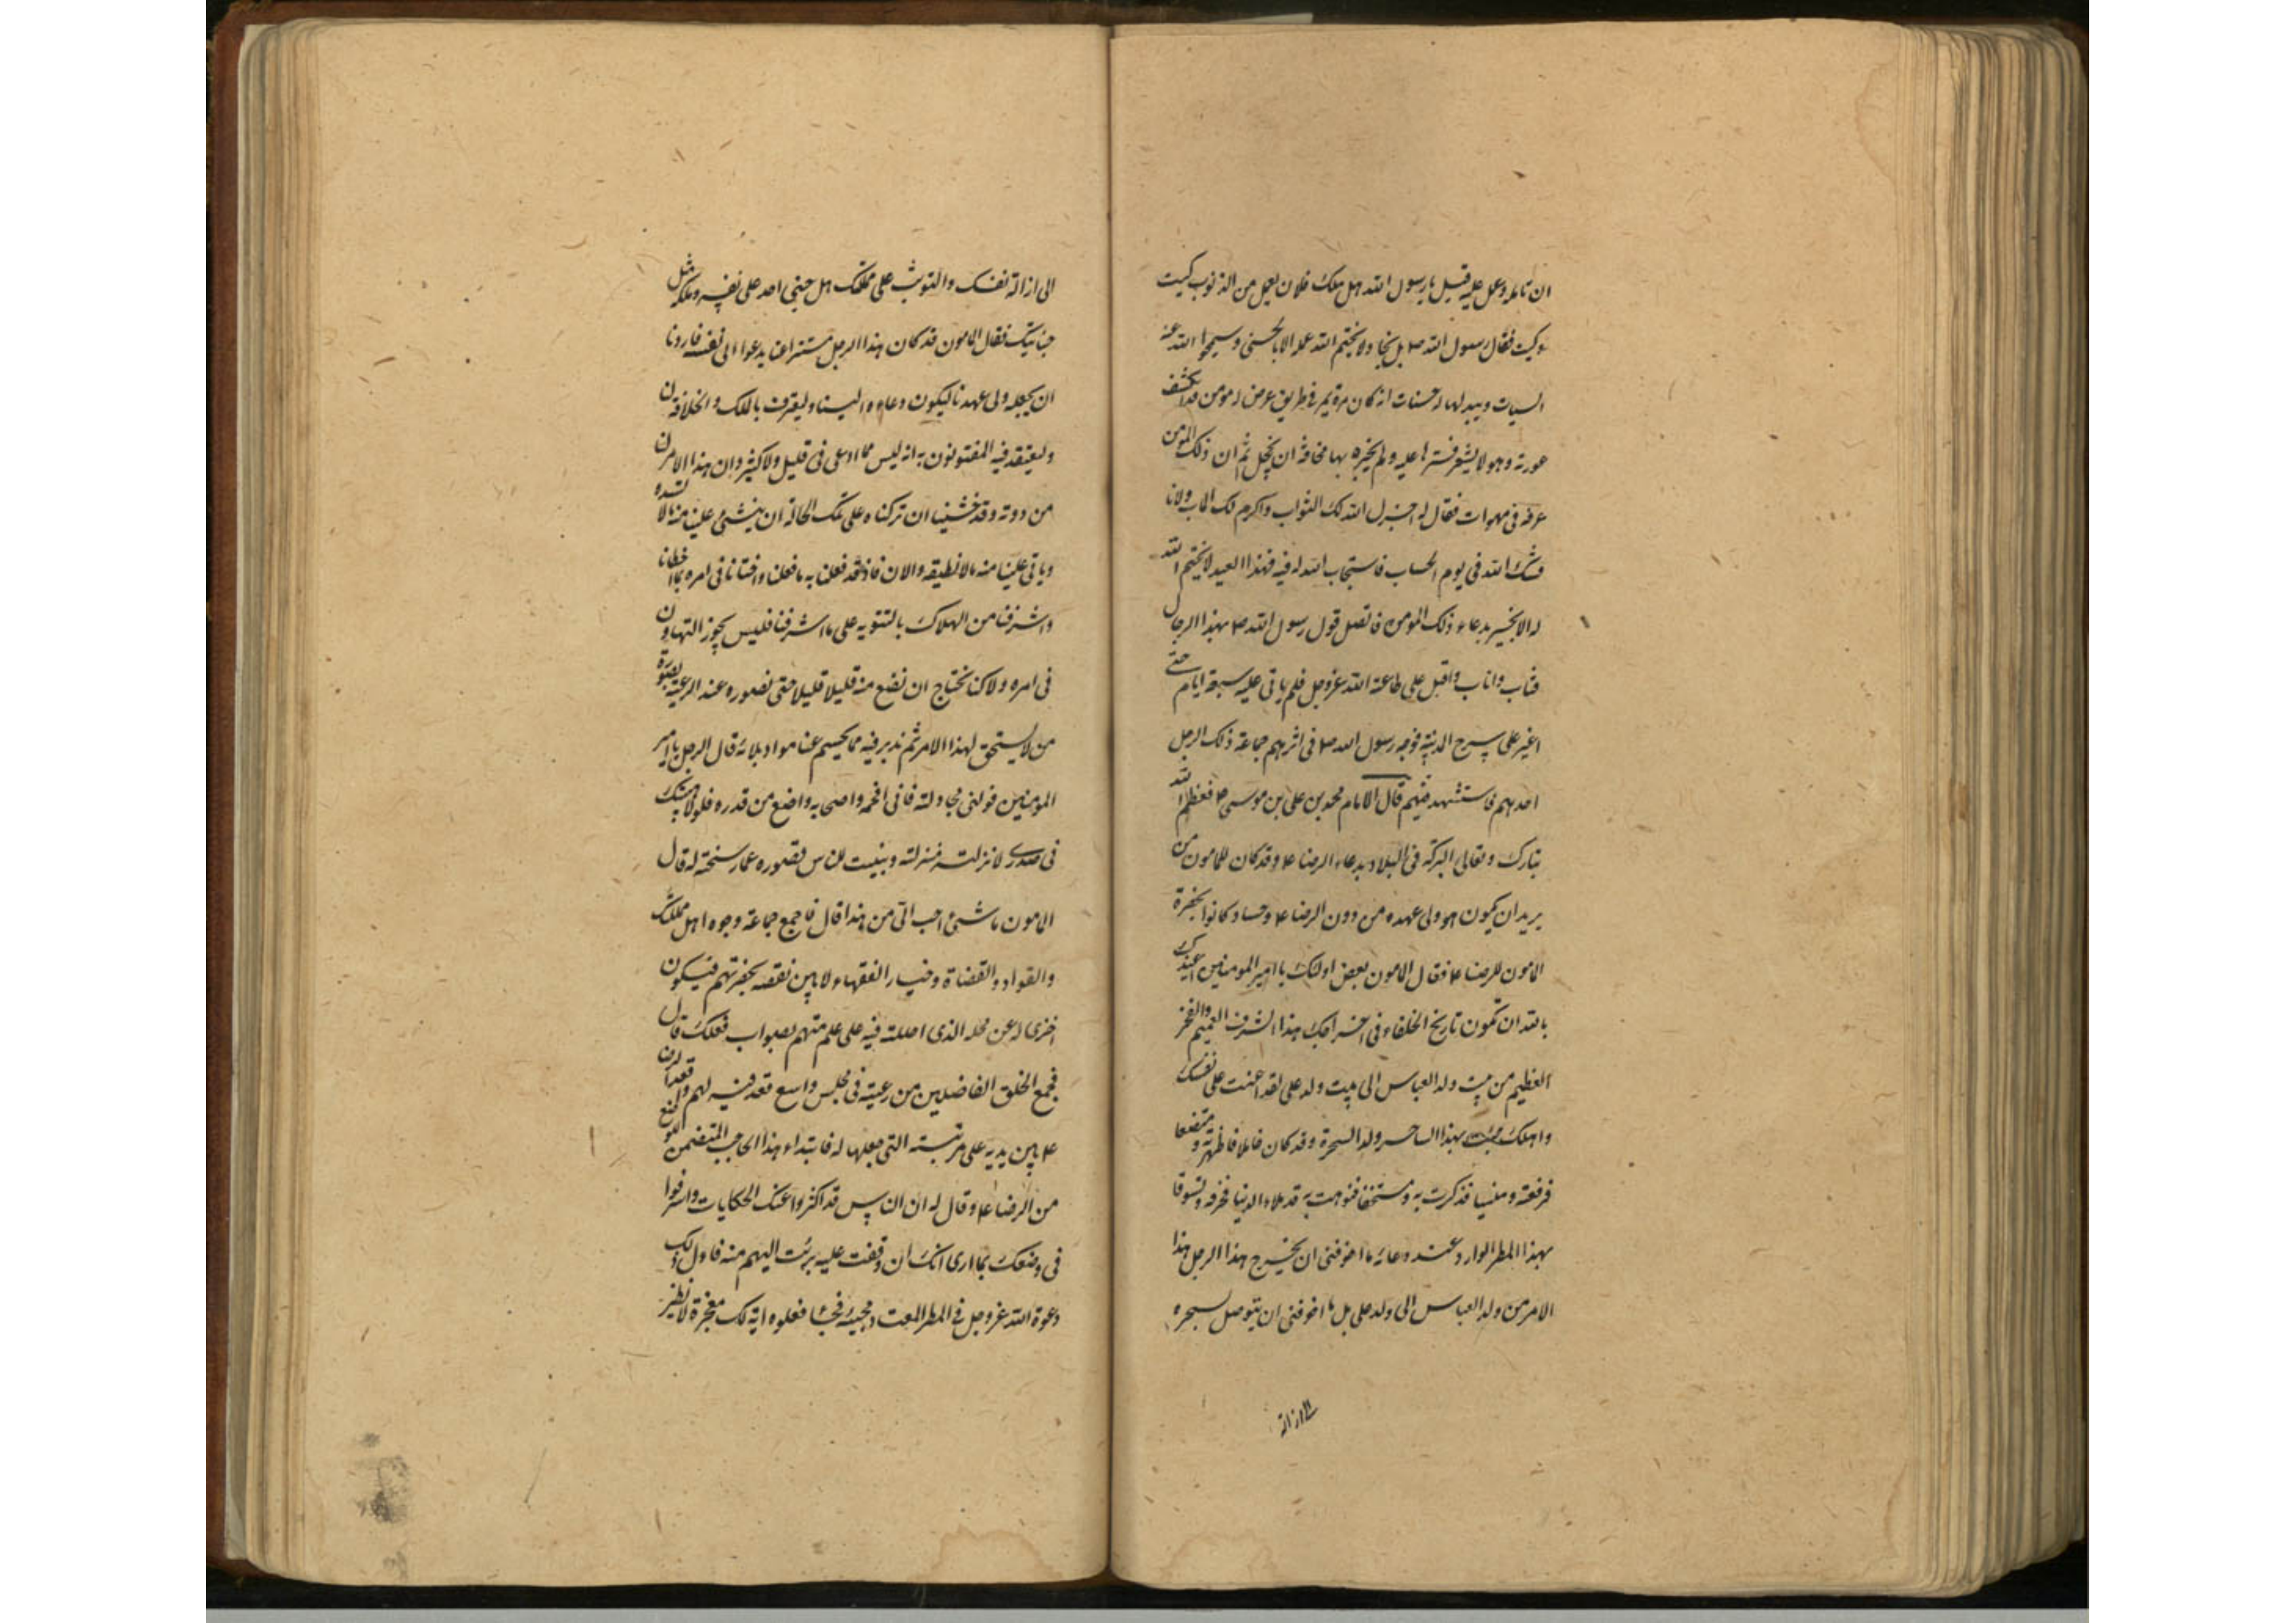 ان تامله وعمل عليه قيل يا رسول الله هلك فلان يعمل من الذنوب كيت
وكيت فقال رسول الله ص بل نجا ولا يختم الله عمله الا بالحسنى وسيمحوا الله عنه
السيات ويبدلها له حسنات انه كان مرة يمر فى طريق عرض له مومن قد انكشف
عورته وهو لا يشعر فسترها عليه ولم يخبره بها مخافة ان يخجل ثم ان ذلك المومن
عرفه فى مهوات فقال له اجزل الله لك الثواب واكرم لك الماب ولا نا
قشك الله فى يوم الحساب فاستجاب الله له فيه فهذا العبد لا يختم الله
له الا بخير بدعاء ذلك المومن فاتصل قول رسول الله ص بهذا الرجل
فتاب واناب واقبل على طاعة الله عز وجل فلم ياتى عليه سبعة ايام حتى
اغير على سرح المدينة فوجه رسول الله ص فى اثرهم جماعة ذلك الرجل
احدهم فاستشهد فيهم قال الامام محمد بن على بن موسى ع فعظم الله
تبارك وتعالى البركة فى البلاد بدعاء الرضا ع وقد كان للمامون من
يريد ان يكون هو ولى عهده من دون الرضا ع وحساد كانوا بحضرة
المامون للرضا ع فقال للامون بعض اولئك يا امير المومنين اعيذك
بالله ان تكون تاريخ الخلفاء فى اخراجك هذا الشرف العميم والفخر
العظيم من بيت ولد العباس الى بيت ولد على لقد اعنت على نفسك
واهلك جئت بهذا الساحر ولد السحرة وقد كان خاملا فاظهرته ومتضعا
فرفعته ومنسيا فذكرت به ومستخفا فنوهت به قد ملاء الدنيا مخرقه وتسوقا
بهذا المطر الوارد عند دعائه ما اخوفنى ان يخرج هذا الرجل هذا
الامر من ولد العباس الى ولد على بل ما اخوفنى ان يتوصل بسحره
الى ازالة
الى ازالة نفسك والتوثب على مملكتك هل جنى احد على نفسه وملكه مثل
جنايتك فقال المامون قد كان هذا الرجل مستترا عنا يدعوا الى نفسه فاردنا
ان يجعله ولى عهدنا ليكون دعاوه الينا وليعترف بالملك والخلافة لنا
وليعتقد فيه المفتونون به انه ليس مما ادعى فى قليل ولا كثير وان هذا الامر لنا
من دونه وقد خشينا ان تركناه على تلك الحالة ان ينشى علينا منه ما لا نسده
وياتى علينا منه ما لا نطيقه والان فاذ قد فعلنا به ما فعلنا وافتانا فى امره بما اخطانا
واشرفنا من الهلاك بالتنويه على ما اشرفنا فليس يجوز التهاون
فى امره ولاكنا نحتاج ان نضع منه قليلا قليلا حتى نصوره عند الرعية بصورة
من لا يستحق لهذا الامر ثم ندبر فيه بما يحسم عنا مواد بلائه قال الرجل يا امير
المومنين فولنى مجادلته فانى افحمه واصحابه واضع من قدره فلولا هيبتك
فى صدرى لانزلته منزلته وبينت للناس قصوره عما رشحته له قال
المامون ما شئ احب الى من هذا قال فاجمع جماعة وجوه اهل مملكتك
والقواد والقضاة وخيار الفقهاء لابين نقصه بحضرتهم فيكون
اخزى له عن محله الذى احللته فيه على علم منهم بصواب فعلك قال
فجمع الخلق الفاضلين من رعيته فى مجلس واسع قعد فيه لهم واقعد الرضا
ع بين يديه على مرتبته التى جعلها له فابتداء هذا الحاجب المتضمن للوضع
من الرضا ع وقال له ان الناس قد اكثروا عنك الحكايات واسرفوا
فى وصفك بما ارى انك ان وقفت عليه برئت اليهم منه فاول ذلك
دعوة الله عز وجل فى المطر المعتاد مجيئه فجاء فجعلوه اية لك معجزة لا نظير